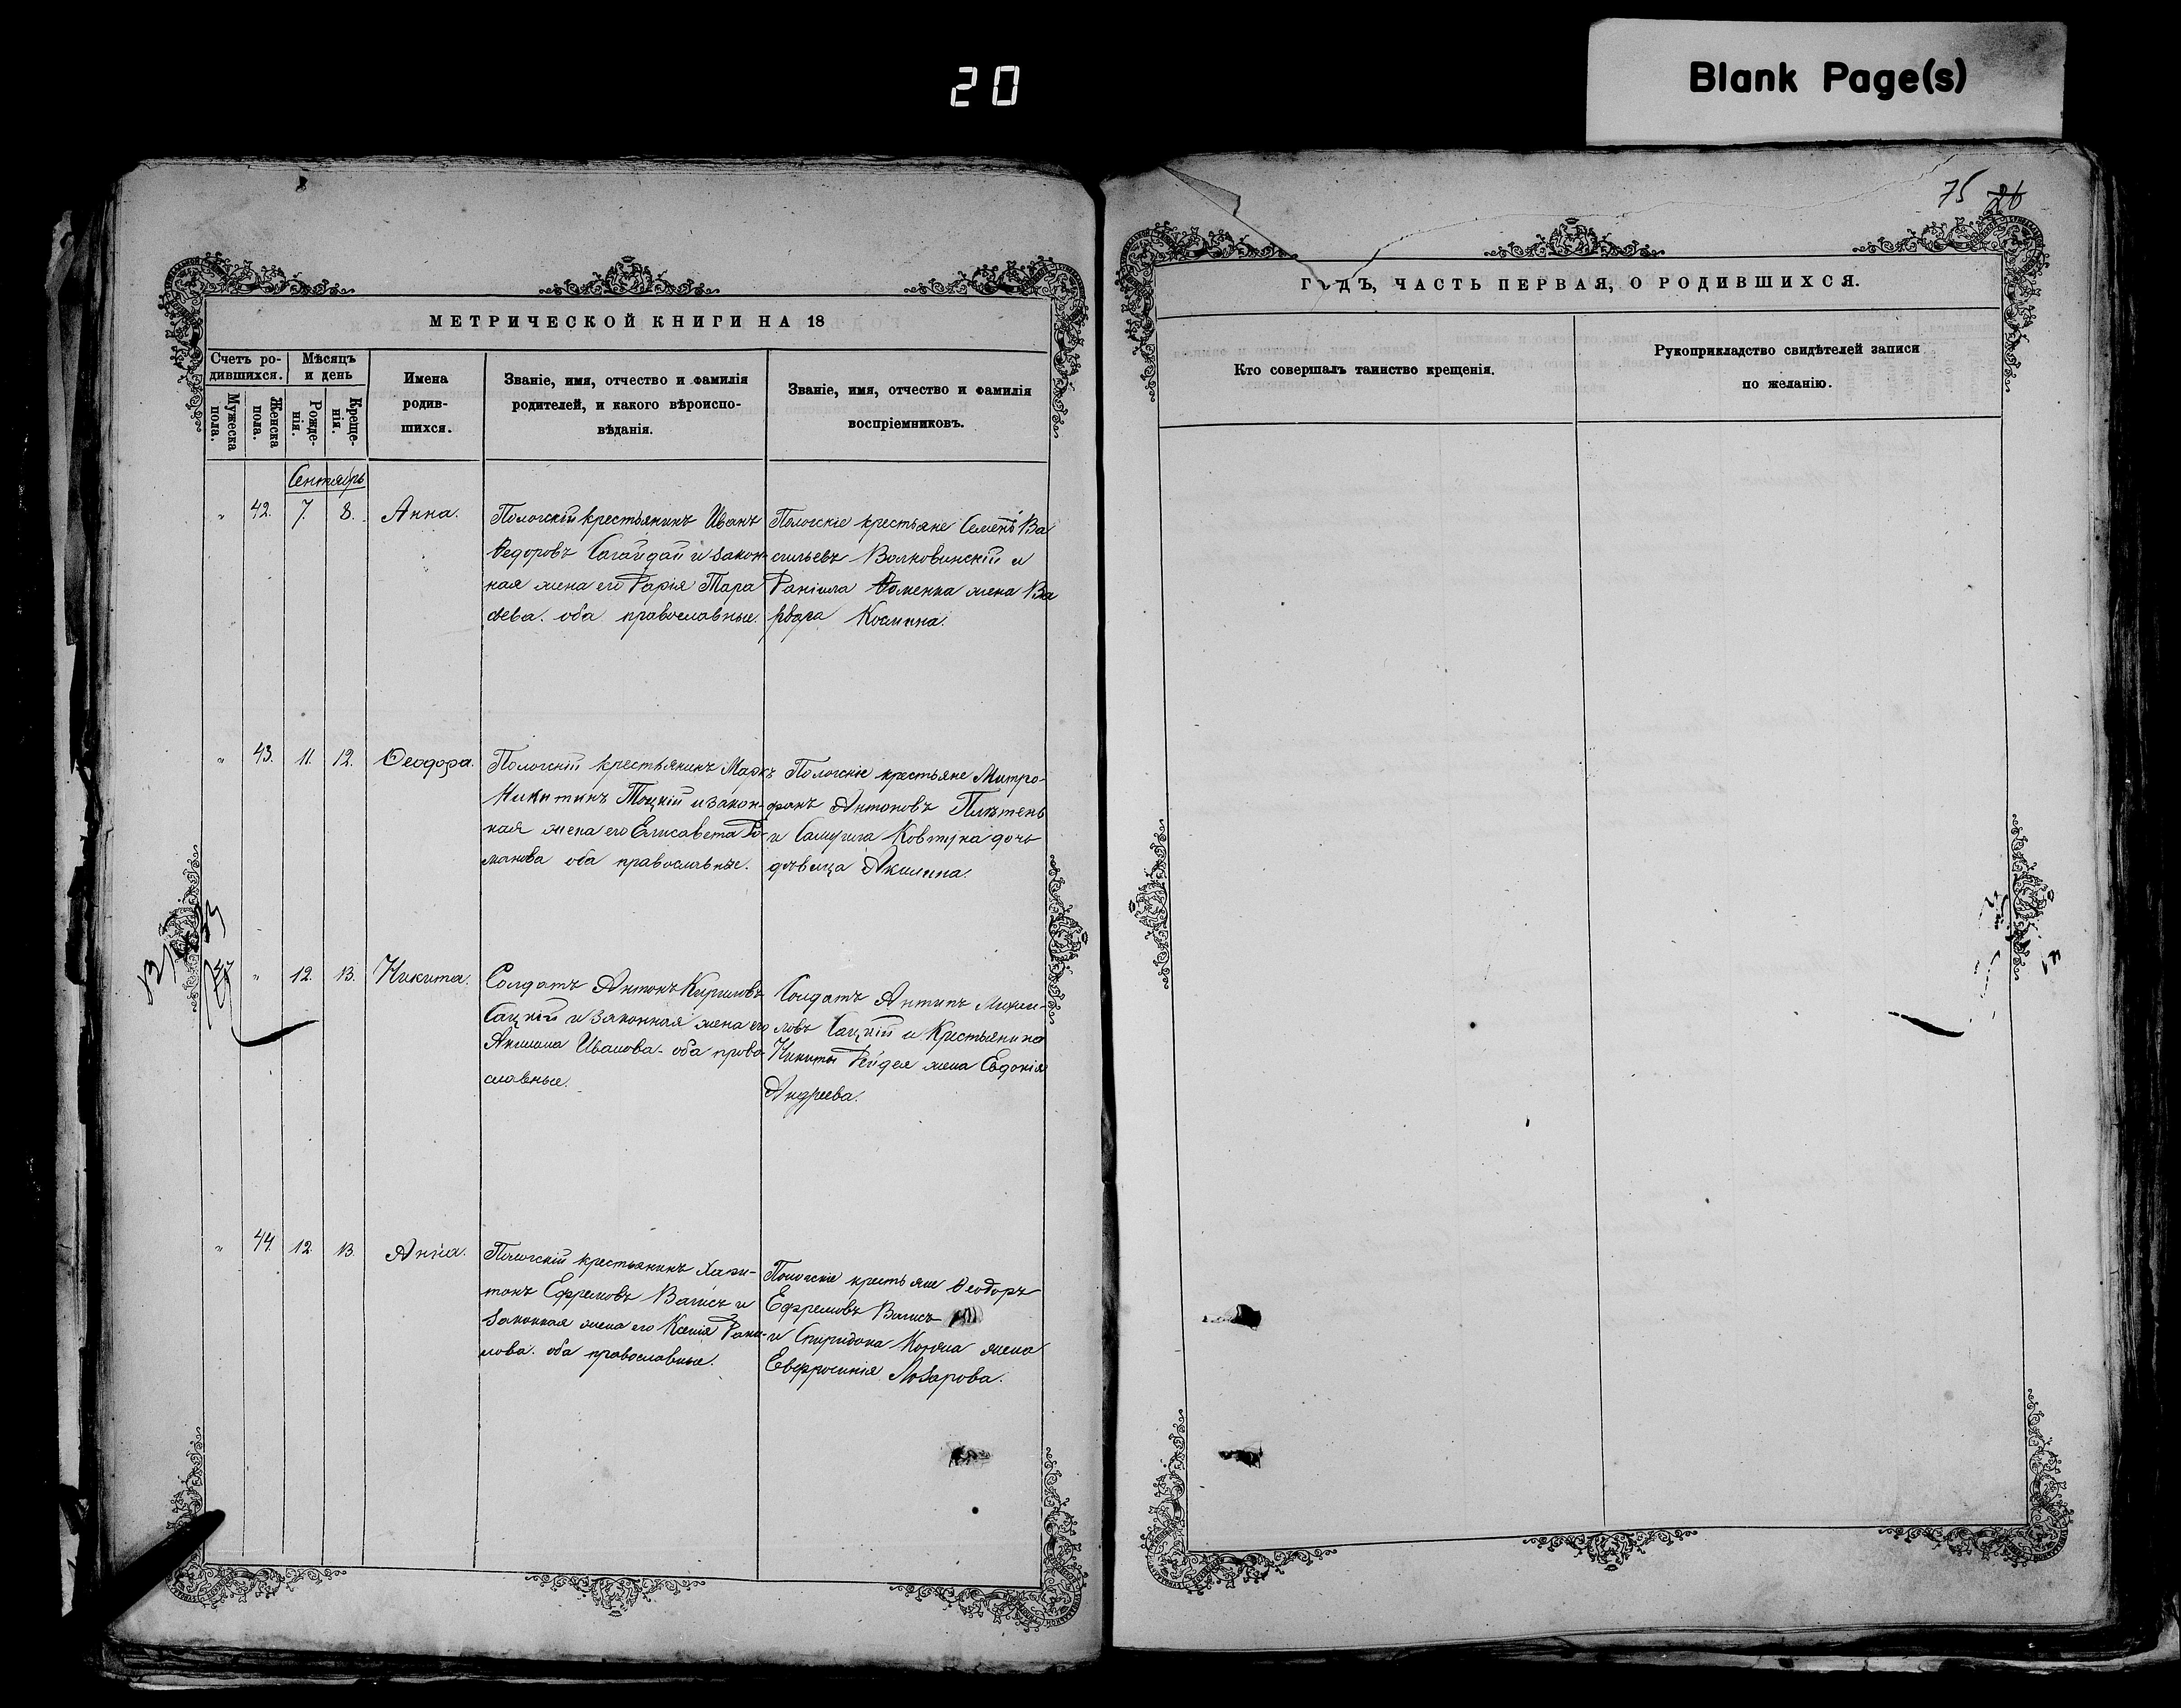 20
Blank Page(s)
75 26
МЕТРИЧЕСКОЙ КНИГИ НА 18
Счетъ ро-
дившихся.
Мужеска
пола.
Женска
пола.
Мѣсяцъ
и день
Рожде-
нія.
Креще-
нія.
Имена
родив-
шихся.
Званіе, имя, отчество и фамилія
родителей, и какого вѣроиспо-
вѣданія.
Званіе, имя, отчество и фамилія
воспріемниковъ.
Сентябрь
" 42. 7. 8. Анна.
Пологскій крестьянинъ Иванъ
Ѳедоровъ Сагайдай и закон-
ная жена его Дарія Тара
сіева. оба православные.
Пологскіе крестьяне Семенъ Ва
сильевъ Волковинскій и
Даніила Ѳоменка жена Ва
рвара Космина.
" 43. 11. 12. Ѳеодора.
Пологскій крестьянинъ Маркъ
Никитинъ Тоцкій и закон-
ная жена его Елисавета Ро-
манова оба православные.
Пологскіе крестьяне Митро-
фанъ Антоновъ
и Самуила Ковтуна дочь
дѣвица Акилина.
" 12. 13. Никита.
Солдатъ Антонъ Кириловъ
Сацкій и законная жена его
Ивановa. оба право
славные.
Солдатъ Антипъ Михаи-
ловъ Сацкій и Крестьянина
Никиты жена Евдокія
Андреева.
" 44. 12. 13. Анна.
Пологскій крестьянинъ Хари-
тонъ Ефремовъ и
законная жена его Ксенія Дани-
лова. оба православные.
Пологскіе крестьяне Ѳеодоръ
Ефремовъ
и Спиридона жена
Евфросинія Лазарова.
ГОДЪ, ЧАСТЬ ПЕРВАЯ, О РОДИВШИХСЯ.
Кто совершалъ таинство крещенія.
Рукоприкладство свидѣтелей записи
по желанію.